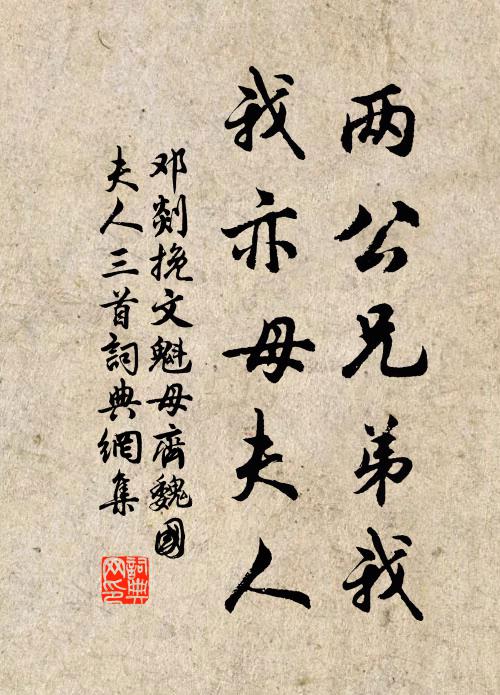 两公兄弟我
我亦母夫人
邓剡挽文魁母齊魏國
夫人三首詞典網集
詞典
网印